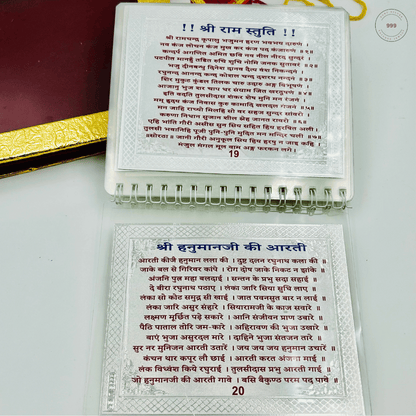 !! श्री राम स्तुति !!
श्री रामचन्द्र कृपालु भजुमन हरण भवभय दारुणं ।
नव कंज लोचन कंज मुख कर कंज पद कंजारुणं ॥
कन्दर्प अगणित अमित छवि नव नील नीरद सुन्दरं
पटपीत मानहुँ तडित रुचि शुचि नोमि जनक सुतावरं ॥
भजु दीनबन्धु दिनेश दानव दैत्य वंश निकन्दनं
रघुनन्द आनन्द कन्द कोशल चन्द दशरथ नन्दनं ॥
शिर मुकुट कुंडल तिलक चारु उदारु अङ्ग विभूषणं ।
आजानु भुज शर चाप धर संग्राम जित खरदूषणं ॥
इति वदति तुलसीदास शंकर शेष मुनि मन रंजनं ।
मम् हृदय कंज निवास कुरु कामादि खलदल गंजनं ॥
मन जाहि राच्यो मिलहि सो वर सहज सुन्दर सांवरो
करुणा निधान सुजान शील स्नेह जानत रावरो ॥
एहि भांति गौरी असीस सुन सिय सहित हिय हरषित अली ।
तुलसी भवानिहि पूजी पुनि-पुनि मुदित मन मन्दिर चली ॥
॥सोरठा॥ जानी गौरी अनुकूल सिय हिय हरषु न जाइ कहि ।
मंजुल मंगल मूल वाम अङ्ग फरकन लगे।
19
श्री हनुमानजी की आरती
आरती कीजै हनुमान लला की । दुष्ट दलन रघुनाथ कला की
जाके बल से गिरिवर कांपे । रोग दोष जाके निकट न झांके ॥
अंजनि पुत्र महा बलदाई । सन्तन के प्रभु सदा सहाई
दे बीरा रघुनाथ पठाए । लंका जारि सिया सुधि लाए ॥
लंका सो कोट समुद्र सी खाई । जात पवनसुत बार न लाई
लंका जारि असुर संहारे । सियारामजी के काज सवारे
लक्ष्मण मूर्छित पड़े सकारे । आनि संजीवन प्राण उबारे ॥
पैठि पाताल तोरि जम-कारे । अहिरावण की भुजा उखारे ॥
बाएं भुजा असुरदल मारे । दाहिने भुजा संतजन तारे ॥
सुर नर मुनिजन आरती उतारें । जय जय जय हनुमान उचारें ॥
कंचन थार कपूर लौ छाई । आरती करत अंजना माई ॥
लंक विध्वंश किये रघुराई । तुलसीदास प्रभु आरती गाई ॥
जो हनुमानजी की आरती गावे । बसि बैकुण्ठ परम पद पावे ॥
20
999